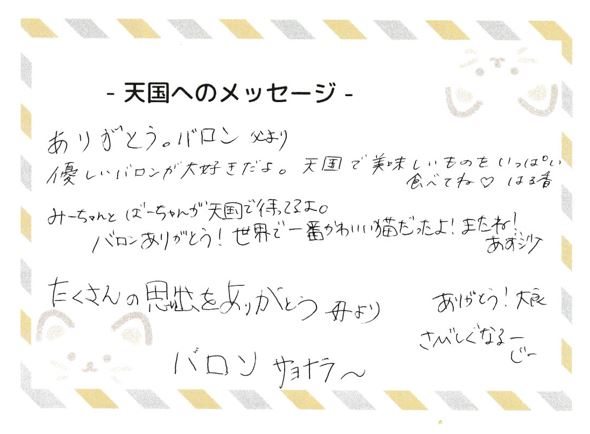 - 天国へのメッセージ -
ありがとう。バロン 父より
優しいバロンが大好きだよ。天国で美味しいものをいっぱい
食べてね♡ はる香
みーちゃんと ばーちゃんが天国で待ってるよ。
バロンありがとう!世界で一番かわいい猫だったよ!またね!
あす沙
たくさんの思い出をありがとう 母より
ありがとう!大良
さびしくなるー
じー
バロン サヨナラ〜